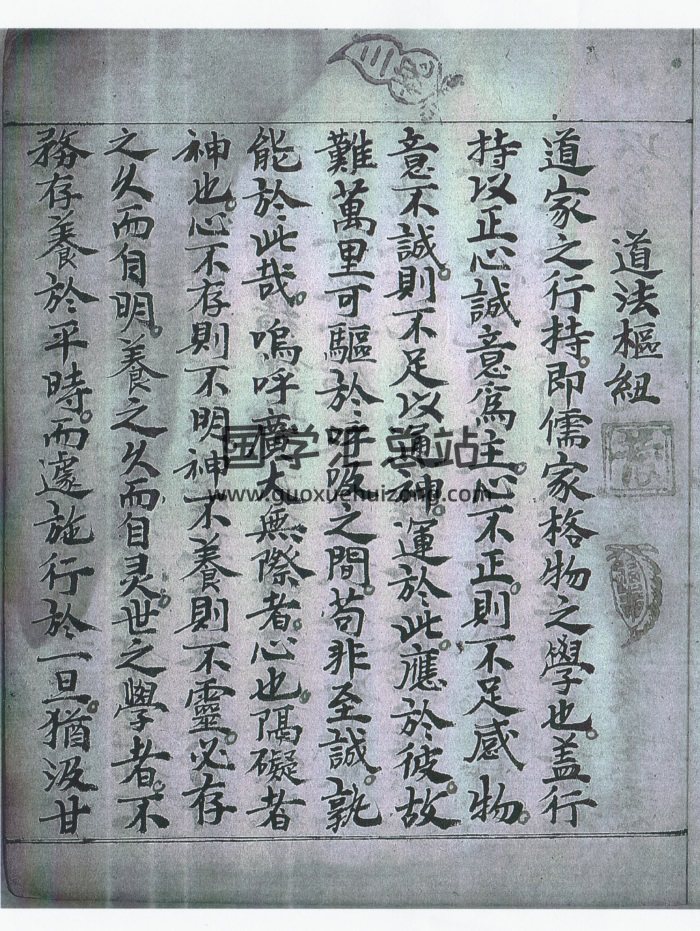 道法樞紐
道家之行持。即儒家格物之學也。盖行
持以正心誠意爲主。心不正。則不足感物。
意不誠。則不足以通神。運於此。應於彼。故
難萬里可驅於呼吸之間。苟非至誠。孰
能於此哉。嗚呼廣大無際者。心也。隔礙者
神也。心不存則不明。神不養則不靈。必存
之久而自明。養之久而自灵。世之學者。不
務存養於平時。而遽施行於一旦。猶汲甘
国学 站
www.guoxuehuizong.com